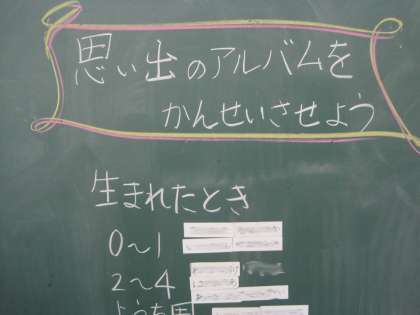 思い出のアルバムを
かんせいさせよう
生まれたとき
0〜1
2〜4
ようち園